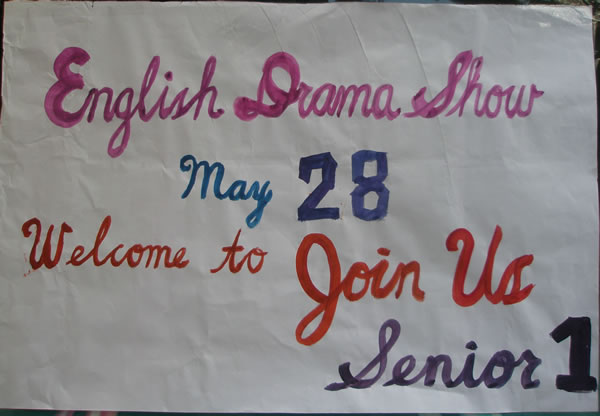 English Drama Show
May 28
Welcome to Join Us
Senior 1